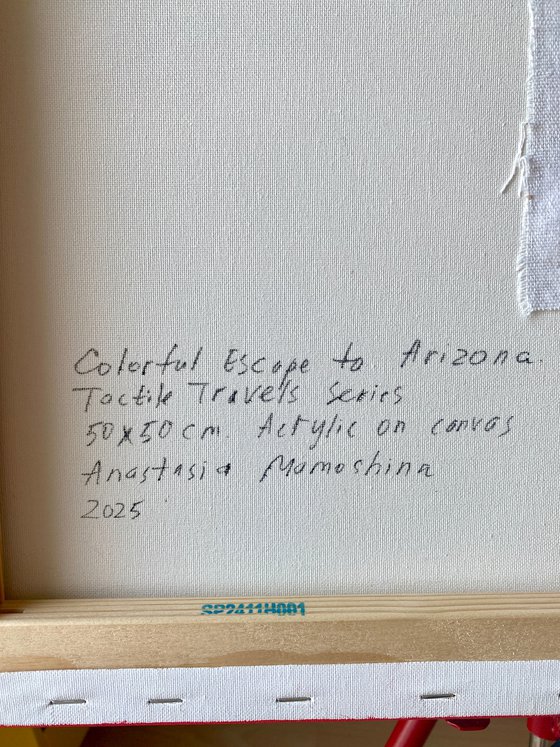 Colorful Escape to Arizona.
Tactile Travels Series
50x50cm Acrylic on canvas
Anastasia Mamoshina
2025
SP2411H001